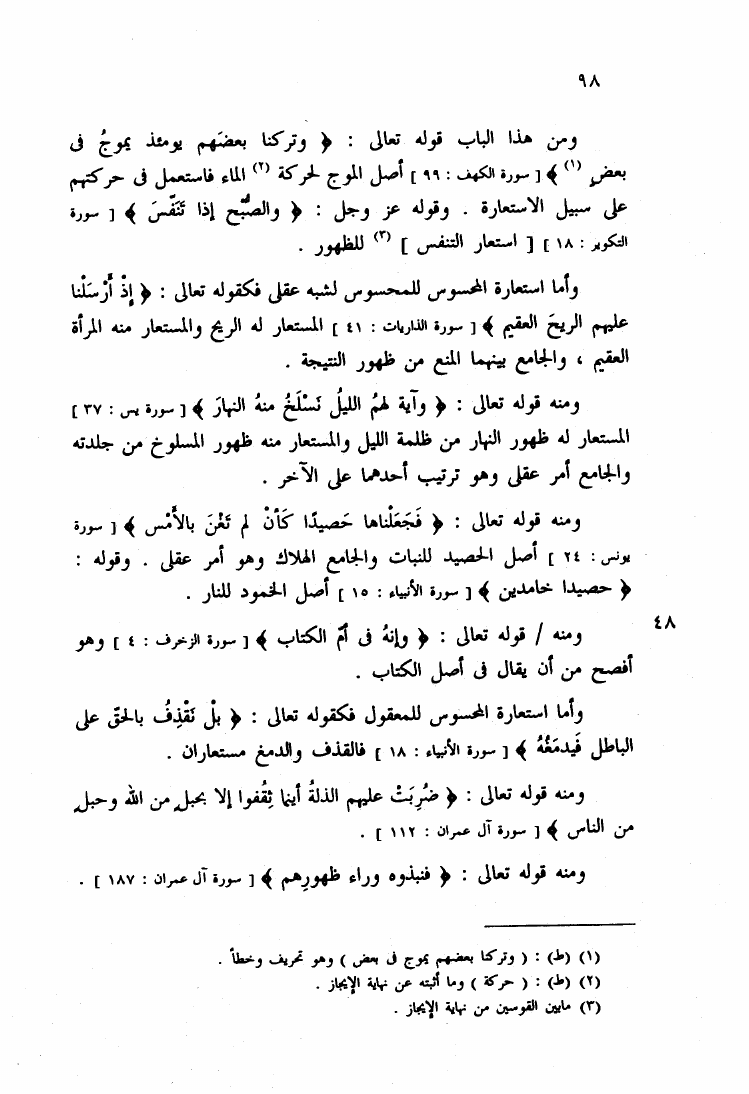 ٩٨
ومن هذا الباب قوله تعالى : ﴿ وتركنا بعضَهم يومئذ يموجُ فى
بعضٍ (١) ﴾ [ سورة الكهف : ٩٩ ] أصل الموج لحركة (٢) الماء فاستعمل فى حركتهم
على سبيل الاستعارة . وقوله عز وجل : ﴿ والصُّبْحِ إذا تَنَفَّسَ ﴾ [ سورة
التكوير : ١٨ ] [ استعار التنفس ] (٣) للظهور .
وأما استعارة المحسوس للمحسوس لشبه عقلى فكقوله تعالى : ﴿ إذْ أَرْسَلْنا
عليهم الريحَ العقيم ﴾ [ سورة الذاريات : ٤١ ] المستعار له الريح والمستعار منه المرأة
العقيم ، والجامع بينهما المنع من ظهور النتيجة .
ومنه قوله تعالى : ﴿ وآية لهمُ الليلُ نَسْلَخُ منهُ النهارَ ﴾ [ سورة يس : ٣٧ ]
المستعار له ظهور النهار من ظلمة الليل والمستعار منه ظهور المسلوخ من جلدته
والجامع أمر عقلى وهو ترتيب أحدهما على الآخر .
ومنه قوله تعالى : ﴿ فَجَعَلْناها حَصيدًا كَأنْ لم تَغْنَ بالأَمْس ﴾ [ سورة
يونس : ٢٤ ] أصل الحصيد للنبات والجامع الهلاك وهو أمر عقلى . وقوله :
﴿ حصيدا خامدين ﴾ [ سورة الأنبياء : ١٥ ] أصل الخمود للنار .
ومنه / قوله تعالى : ﴿ وإنهُ فى أمّ الكتاب ﴾ [ سورة الزخرف : ٤ ] وهو
٤٨
أفصح من أن يقال فى أصل الكتاب .
وأما استعارة المحسوس للمعقول فكقوله تعالى : ﴿ بلْ نَقْذِفُ بالحَقّ على
الباطل فَيدمَغُهُ ﴾ [ سورة الأنبياء : ١٨ ] فالقذف والدمغ مستعاران .
ومنه قوله تعالى : ﴿ ضُرِبَتْ عليهم الذلةُ أينما ثِقُفوا إلا بحبلٍ من الله وحبلٍ
من الناس ﴾ [ سورة آل عمران : ١١٢ ] .
ومنه قوله تعالى : ﴿ فنبذوه وراء ظهورِهم ﴾ [ سورة آل عمران : ١٨٧ ] .
(١) (ط) : ( وتركنا بعضهم يموج فى بعض ) وهو تحريف وخطأ .
(٢) (ط) : ( حركة ) وما أثبته عن نهاية الإيجاز .
(٣) مابين القوسين من نهاية الإيجاز .